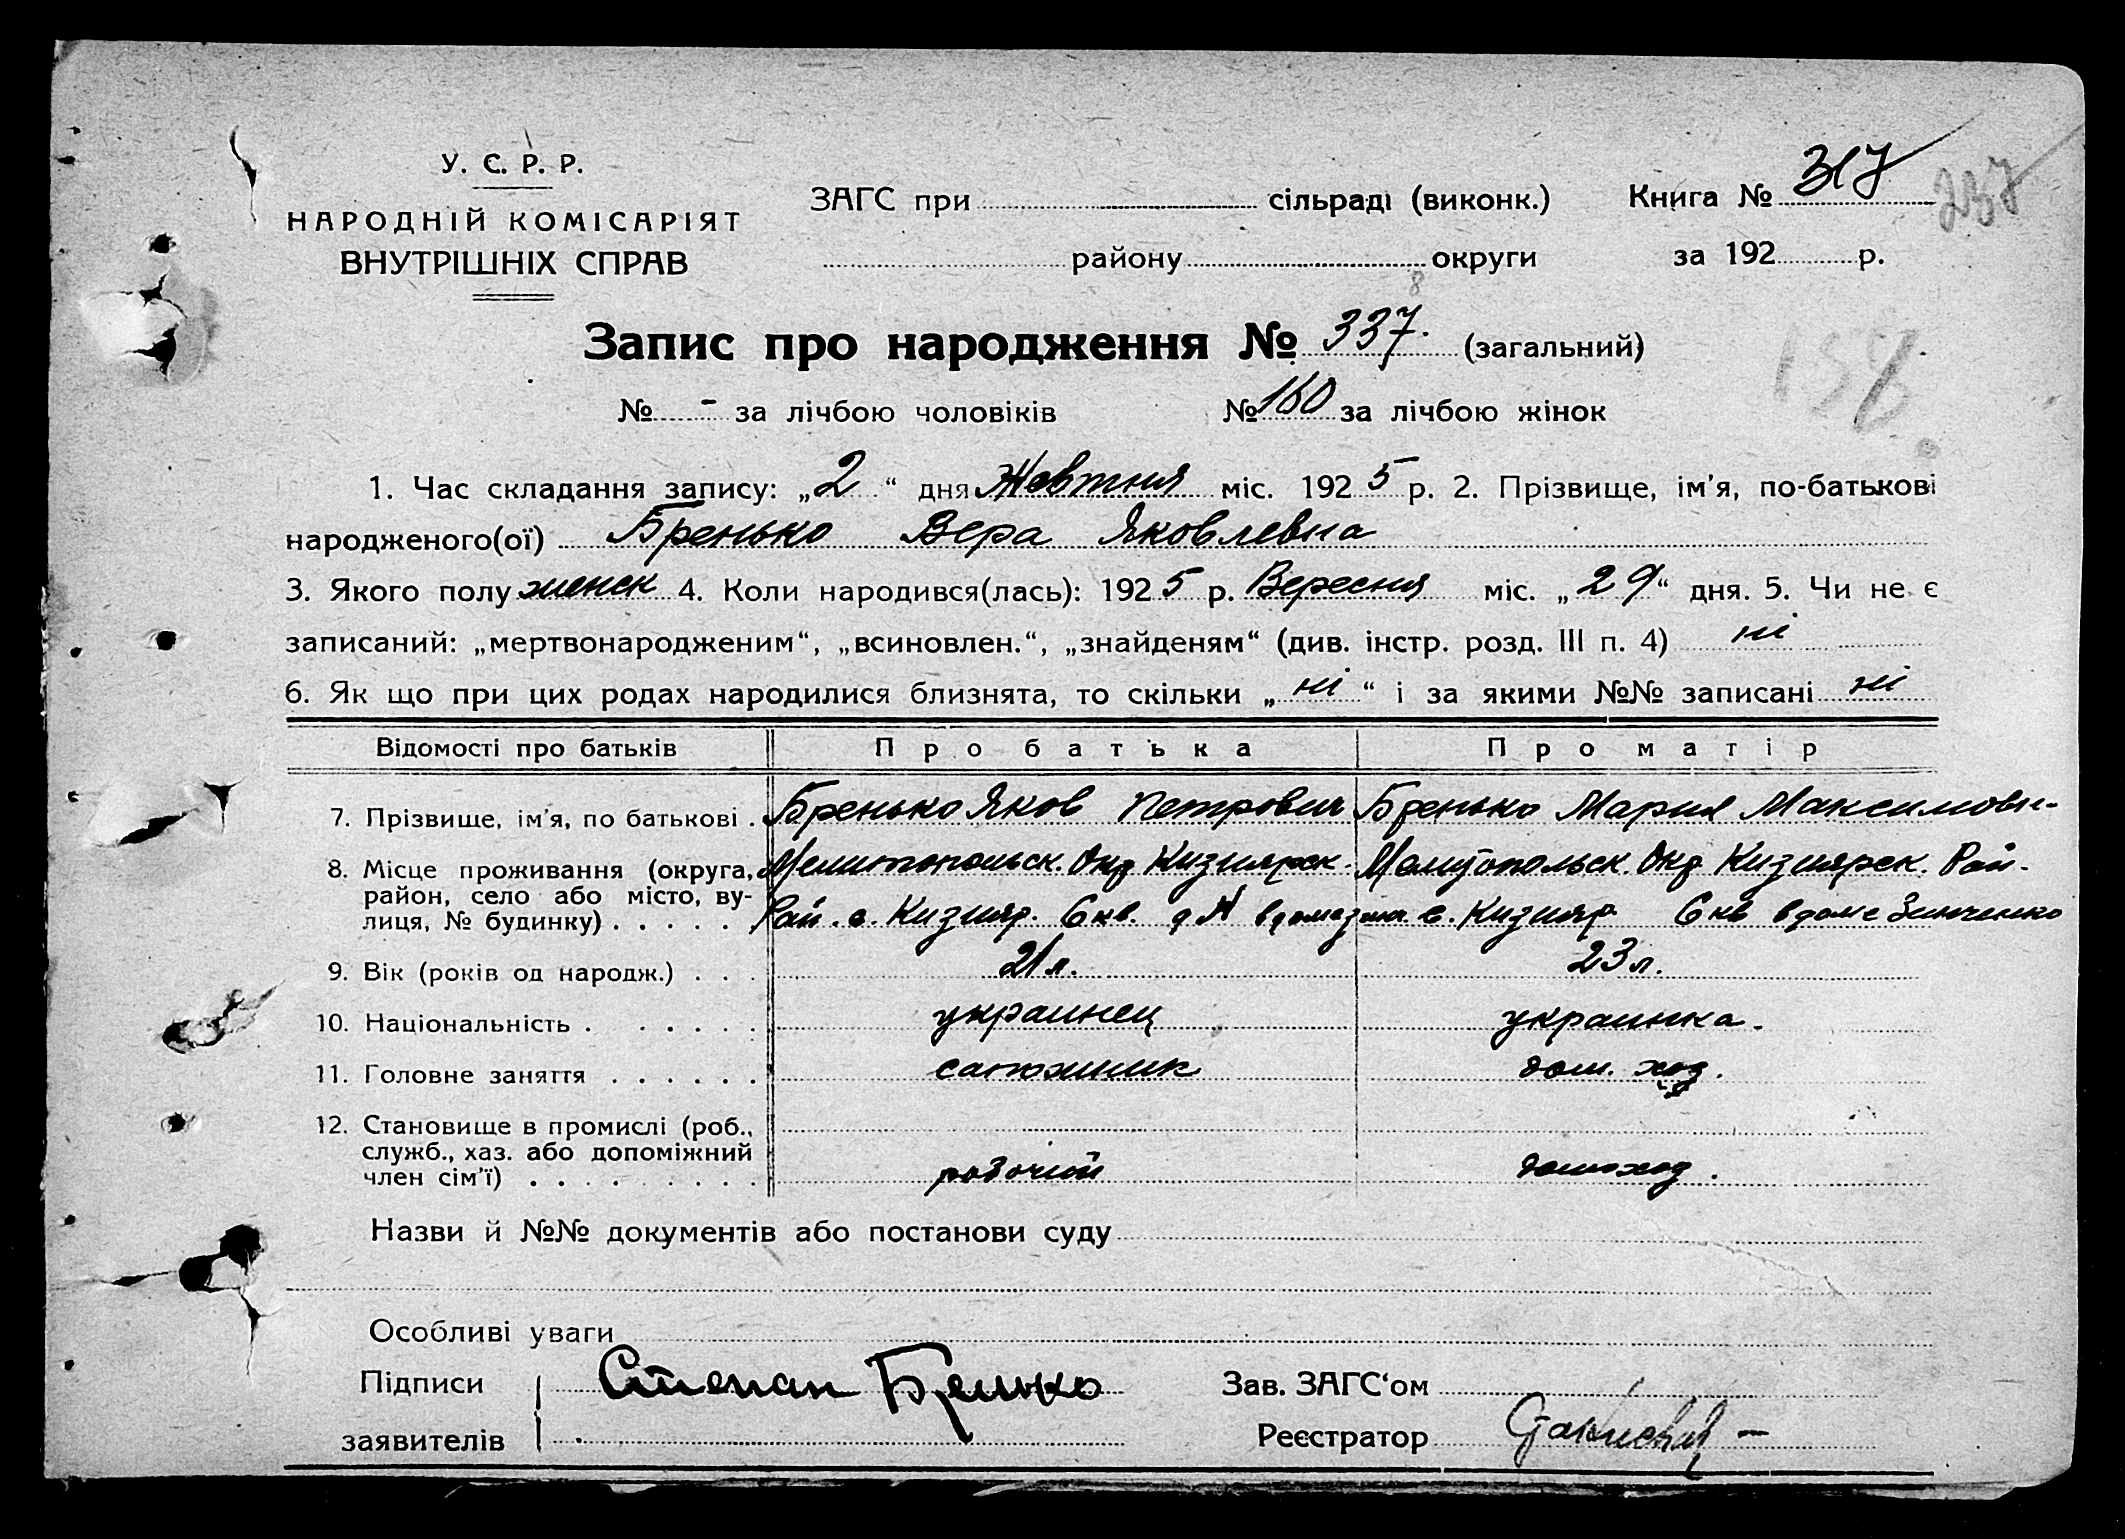 У. С. Р. Р.
НАРОДНІЙ КОМІСАРІЯТ
ВНУТРІШНІХ СПРАВ
ЗАГС при сільраді (виконк.)
району округи
Книга № 317
237
за 192 р.
8
Запис про народження № 337. (загальний)
158
№ - за лічбою чоловіків № 160 за лічбою жінок
1. Час складання запису: „2“ дня Жовтня міс. 1925 р. 2. Прізвище, ім'я, по-батькові
народженого(ої) Бренько Вера Яковлевна
3. Якого полу женск 4. Коли народився(лась): 1925 р. Вересня міс. „29“ дня. 5. Чи не є
записаний: „мертвонародженим“, „всиновлен.“, „знайденям“ (див. інстр. розд. III п. 4) ні
6. Як що при цих родах народилися близнята, то скільки „ні“ і за якими №№ записані ні
Відомості про батьків Про батька Про матір
7. Прізвище, ім'я, по батькові . Бренько Яков Петрович Бренько Мария Максимовн-
8. Місце проживання (округа, Мелитопольск. Окр Кизиярск. Мелитопольск. Окр Кизиярск. Рай.
район, село або місто, ву-
лиця, № будинку) . . . . . Рай. с. Кизияр. 6 кв. с. Кизияр 6 кв в доме Зинченко
9. Вік (років од народж.) . . . 21 л. 23 л.
10. Національність . . . . . . украинец украинка.
11. Головне заняття . . . . . . сапожник дом. хоз.
12. Становище в промислі (роб.,
служб., хаз. або допоміжний
член сім'ї) . . . . . . . . . рабочий домохоз.
Назви й №№ документів або постанови суду
Особливі уваги
Підписи Степан Бренько Зав. ЗАГС'ом
заявителів Реєстратор